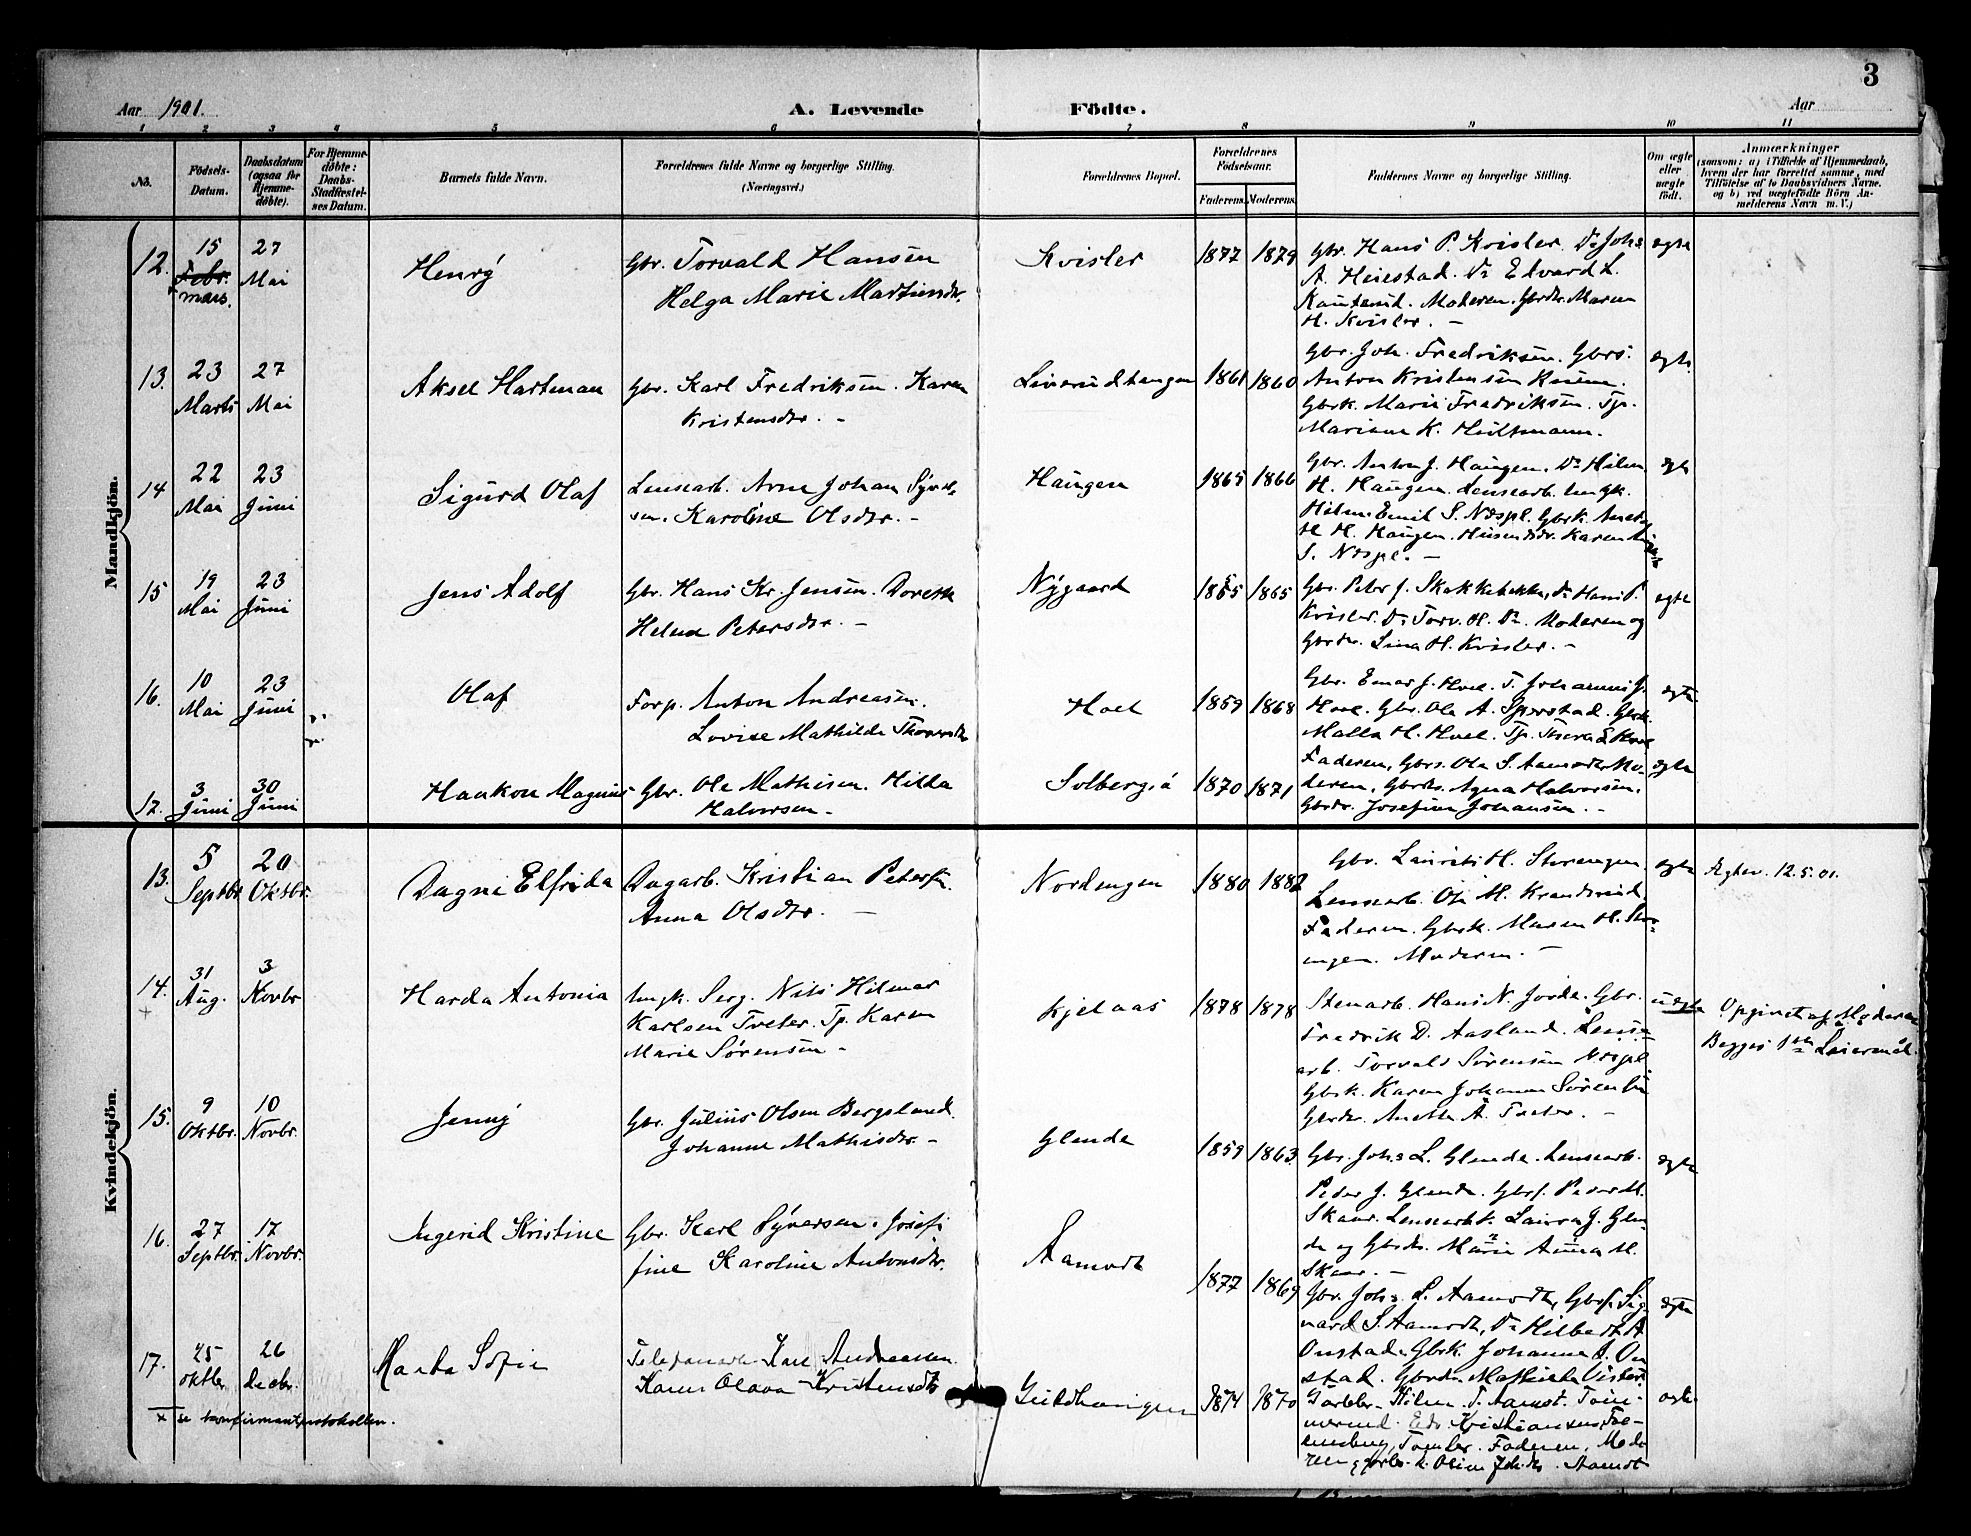 3
Aar 1901.
A. Levende Födte.
Aar
1 2 3 4 5 6 7 8 9 10 11
No.
Födsels-Datum.
Daabsdatum (ogsaa for Hjemme-döbte).
For Hjemme-döbte: Daabs-Stadfæstel-ses Datum.
Barnets fulde Navn.
Forældrenes fulde Navne og borgerlige Stilling. (Næringsvei.)
Forældrenes Bopæl.
Forældrenes Födselsaar.
Faderens. Moderens.
Faddernes Navne og borgerlige Stilling.
Om ægte eller uægte födt.
Anmærkninger
(saasom: a) i Tilfælde af Hjemmedaab, hvem der har forrettet samme, med Tilföielse af to Daabsvidners Navne, og b) ved uægtefödte Börn An-melderens Navn m. V.)
Mandkjön.
12. 15 Febr. mars. 27 Mai
Henrÿ
Gbr. Torvald Hansen
Helga Marie Martinsdtr.
Kvisler
1877 1879
Gbr. Hans P. Kvisler. Do Johs
A. Heiestad. Do Edvard L.
Moderen. Gbrdtr. Maren
H. Kvisler. –
ægte
13. 23 Marts 27 Mai
Aksel Hartman
Gbr. Karl Fredriksen. Karen
Kristensdtr. –
Liverudtangen
1861 1860
Gbr. Joh. Fredriksen. Gbrs.
Anton Kristensen
Gbrk. Marie Fredriksen. Tp.
Mariane K. Hultmann.
ægte
14 22 Mai 23 Juni
Sigurd Olaf
Lensearb. Arne Johan Syver-
sen. Karoline Olsdtr. –
Haugen
1865 1866
Gbr. Anton J. Haugen. Do Hilm.
H. Haugen. Lensearb. Ungk.
Hilm. Emil S. Næspl. Gbrk. Anette
M. H. Haugen. Karen
S. Næspl. –
ægte
15 19 Mai 23 Juni
Jens Adolf
Gbr. Hans Kr. Jensen. Dorethe
Helene Petersdtr. –
Nÿgaard
1865 1865
Gbr. Peter J. Skakkebakke, Do Hans P.
Kvisler. Do Torv. H. Do. Moderen og
Gbrdtr. Lina H. Kvisler. –
ægte
16. 10 Mai 23 Juni
Olaf
Forp. Anton Andreasen.
Lovise Mathilde Thoresdtr
Hoel
1859 1868
Gbr. Einar J. Hoel. T. Johannes J.
Hoel. Gbr. Ole A. Sperstad. Gbrk.
Malla H. Hoel. Tp. Thora E. Hoel
ægte
17. 3 Juni 30 Juni
Haakon Magnus
Gbr. Ole Mathisen. Hilda
Halvorsen –
Solbergsö
1870 1871
Faderen, Gbrs. Ole S. Aamodt, Mo-
deren, Gbrdtr. Agna Halvorsen.
Gbrdtr. Josefine Johansen. –
ægte
Kvindekjön.
13. 5 Septbr. 20 Oktbr.
Dagni Elfrida
Dagarb. Kristian Petersen.
Anna Olsdtr. –
Nordengen
1880 1882
Gbr. Laurits H. Størengen.
Lensearb. Ole M. Krandsrud.
Faderen. Gbrk. Maren H. Stør-
engen. Moderen –
ægte
Ægtev. 12.5.01.
14. + 31 Aug. 3 Novbr
Harda Antonia
Ungk. Serg. Nils Hilmar
Karlsen Treter. Tp. Karen
Marie Sørensen –
Kjelaas
1878 1878
Stenarb. Hans N. Jorde. Gbr.
Fredrik D. Aasland. Lense-
arb. Torvald Sørensen Næspl.
Gbrk. Karen Johanne Sørensen
Gbrdtr. Anette A. Treter. –
uægte
Opgivet af Moderen
Begges 1ste Leiermål.
15. 9 Oktbr. 10 Novbr.
Jennÿ
Gbr. Julius Olsen Bergsland.
Johanne Mathisdtr. –
Glende
1859 1863.
Gbr. Johs L. Glende. Lensearb.
Peder J. Glende. Gbrs. Peder M.
Skaar. Lensearbk. Laura J. Glen-
de og Gbrdtr. Marie Anna M.
Skaar. –
ægte
16. 27 Septbr. 17 Novbr.
Ingerid Kristine
Gbr. Karl Syversen. Josefi
fine Karoline Antonsdtr.
Aamodt
1877 1869
Gbr. Johs. L. Aamodt, Gbrs. Sig-
vard S. Aamodt, Do Hilbert A
Onstad. Gbrk. Johanne L. On
stad. Gbrdtr. Mathilde
ægte
17. 25 oktbr 26 decbr.
Marta Sofie
Telefonarb. Karl Andreassen.
Karen Olava Kristensdtr
Guldhaugen
1874 1870
Hilm. T. Aamot.
Kristiansen,
Faderen, Mode
ren Aamodt
ægte
+ se konfirmantprotokollen.